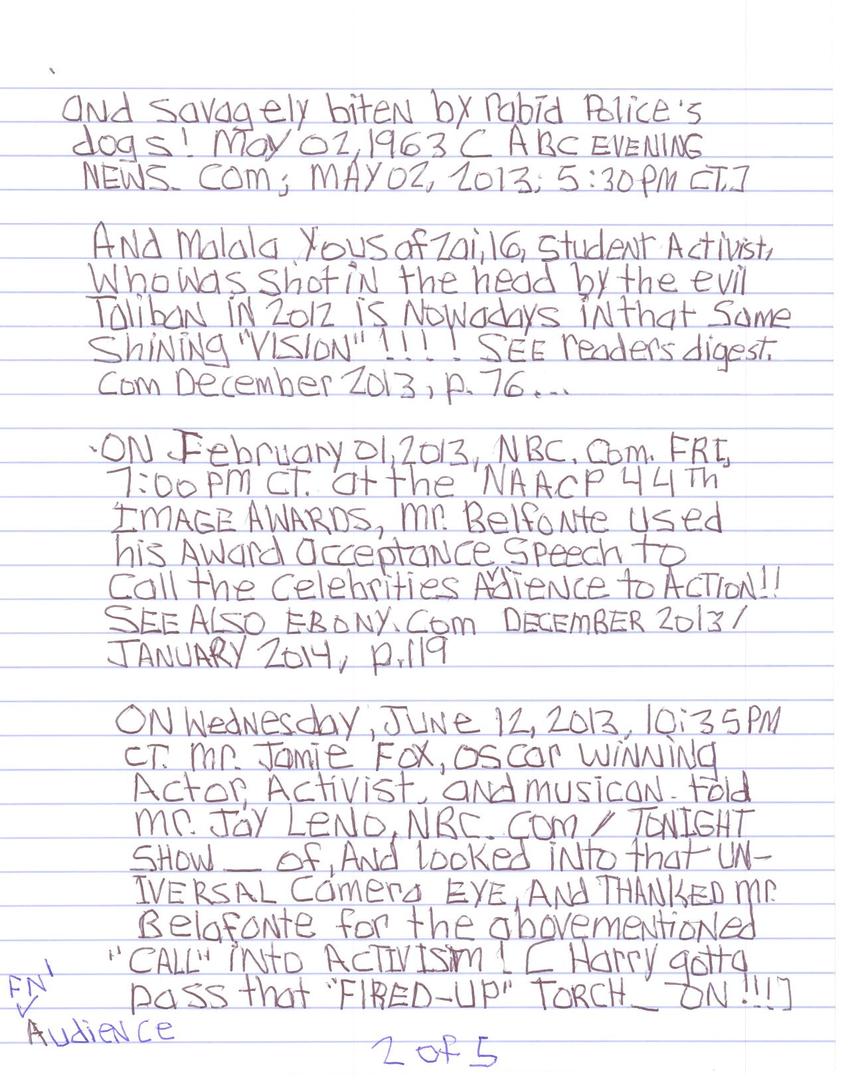 and savagely biten by rabid Police's
dogs! May 02, 1963 [ ABC EVENING
NEWS. COM; MAY 02, 2013; 5:30PM CT.]
And Malala Yousafzai, 16, Student Activist,
Who was shot in the head by the evil
Taliban in 2012 is Nowadays in that same
Shining "VISION" !!!! SEE readers digest.
Com December 2013, p. 76...
ON February 01, 2013, NBC. Com. FRI,
7:00 PM CT. at the NAACP 44Th
IMAGE AWARDS, Mr. Belfonte used
his Award acceptance Speech to
Call the Celebrities Adience to ACTION!!
SEE ALSO EBONY. Com DECEMBER 2013/
JANUARY 2014, p.119
ON Wednesday, JUNE 12, 2013, 10:35PM
CT. Mr. Jamie Fox, oscar WINNING
Actor, Activist, and musican. told
Mr. JAY LENO, NBC. COM / TONIGHT
SHOW__ of, And looked into that UN-
IVERSAL Camera EYE, AND THANKED Mr.
Belafonte for the abovementioned
"CALL" INTO ACTIVISM! [ Harry gotta
pass that "FIRED-UP" TORCH__ ON !!!]
FN1
Audience
2 of 5